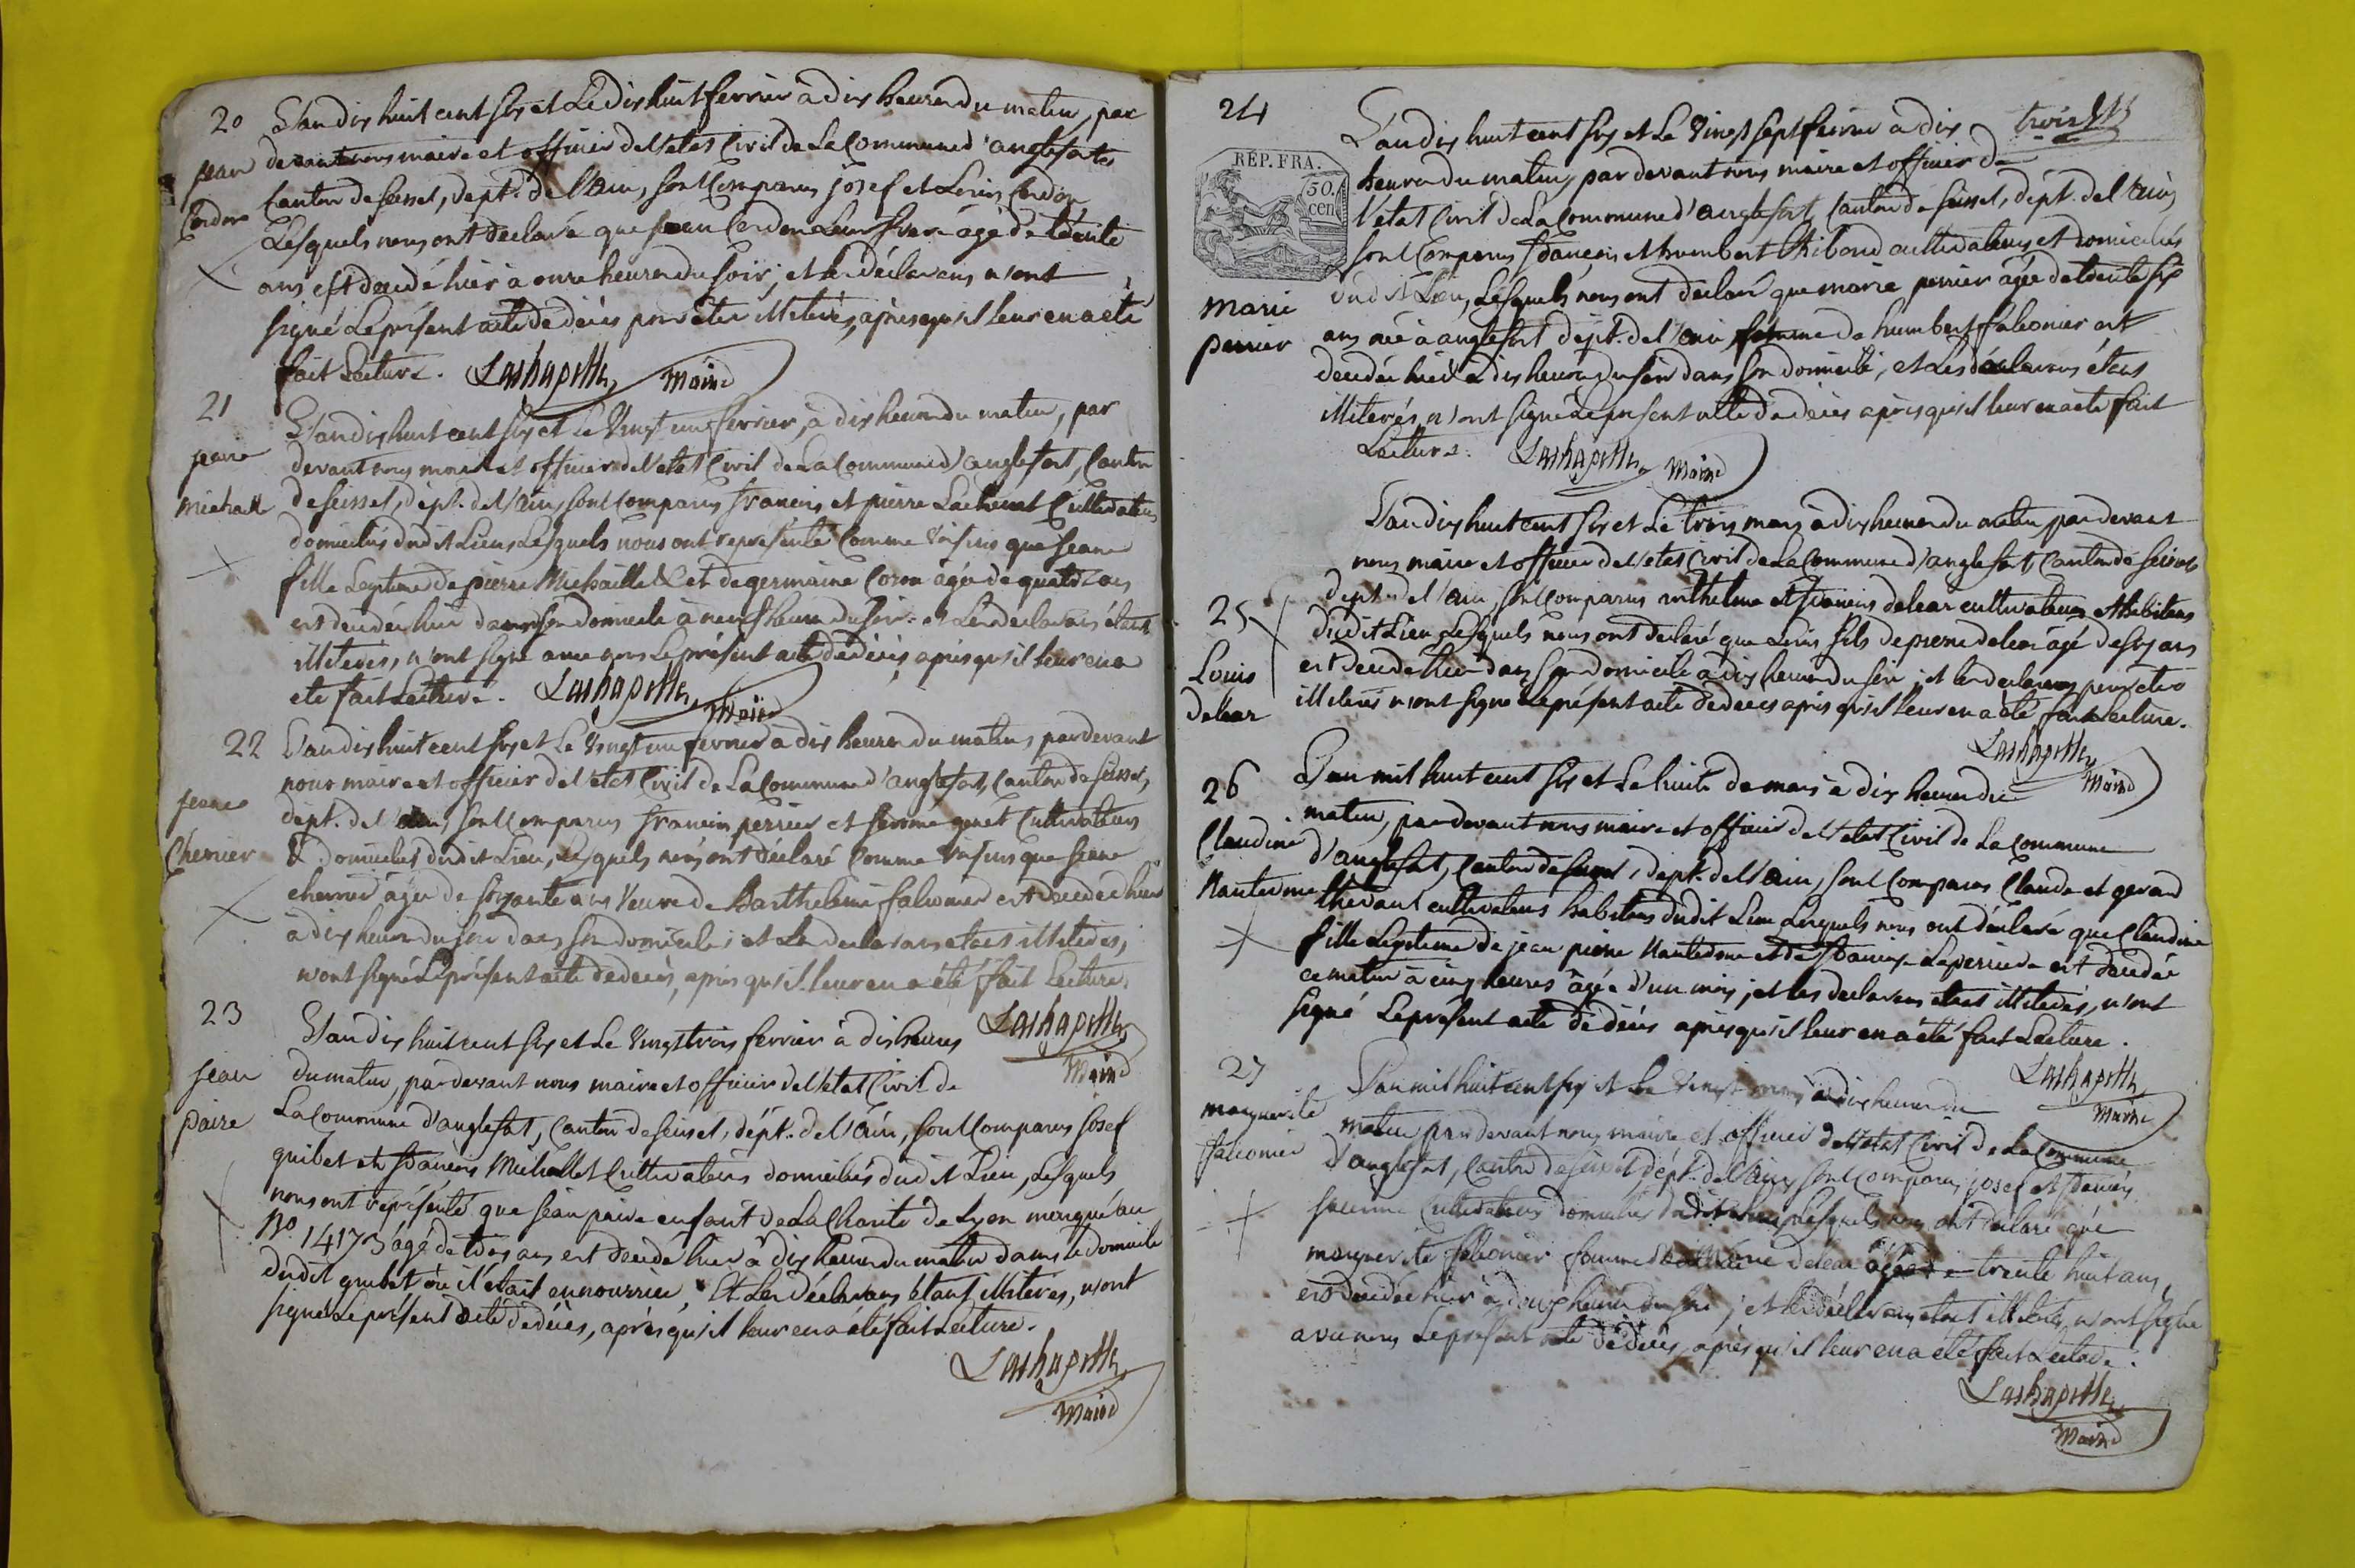 20
jean
Cordon
L'an dix huit cent six et Le dix huit fevrier à dix heures du matin, par
devant nous maire et officier de l'etat Civil de La Commune d'anglefort
Canton de seissel, dept. de l'ain, sont Comparus josef et Louis Cordon
Lesquels nous ont declaré que jean Cordon Leur frere âgé de trente
ans est decedé hier à onze heures du soir; et les déclarans n'ont
signé Le présent acte de décès pour être illiterés, après qu'il leur en a eté
fait Lecture. Lachapelle maire
21
jeane
michaille
L'an dix huit cent six et Le Vingt un fevrier, à dix heures du matin, par
devant nous maire et officier de l'etat Civil de La Commune d'anglefort, Canton
de seissel, dépt. de l'ain, sont Comparus francois et pierre Cultivateurs
domiciliés dudit Lieu Lesquels nous ont représenté Comme Voisins que jeane
fille Legitime de pierre Michaille et de germaine âgée de quatre ans
est decedée hier dans son domicile à neuf heures du soir. et Les declarans étant
illiterés, n'ont signé avec nous Le présent acte de décès, après qu'il leur en a
eté fait Lecture. Lachapelle Maire
22
jeane
Chervier
L'an dix huit cent six et Le Vingt un fevrier à dix heures du matin, pardevant
nous maire et officier de l'etat Civil de La Commune d'anglefort, Canton de seissel,
dépt. de l'ain, sont Comparus francois perrier et Cultivateurs
& domiciliés dudit Lieu, Lesquels nous ont déclaré Comme Voisins que jeane
chervier âgée de soixante ans Veuve de Barthelemi falconier est decedée hier
à dix heures du soir dans son domicile; et Les declarans étant illiterés,
n'ont signé Le présent acte de decès, après qu'il leur en a été fait Lecture.
Lachapelle
Maire
23
jean
paire
L'an dix huit cent six et Le Vingt trois fevrier à dix heures
du matin, pardevant nous maire et officier de l'etat Civil de
La Commune d'anglefort, Canton de seissel, dépt. de l'ain, sont Comparus josef
guibet et francois Michallet Cultivateurs domiciliés dudit Lieu, Lesquels
nous ont représenté que jean paire enfant de La Charité de Lyon marqué au
No. 14173 âgé de trois ans est decedé hier à dix heures du matin dans le domicile
dudit guibet où il était en nourrice, Et Les déclarans étant illiterés, n'ont
signé Le présent acte de décès, après qu'il leur en a été fait Lecture.
Lachapelle
Maire
24
trois
REP. FRA.
50.
cen
marie
perrier
L'an dix huit cent six et Le Vingt sept fevrier à dix
heures du matin, par devant nous maire et officier de
l'etat Civil de La Commune d'anglefort, Canton de seissel, dépt. de l'ain,
sont Comparus francois et humbert Ribaud cultivateurs et domiciliés
dudit Lieu, Lesquels nous ont declaré que marie perrier âgée de trente six
ans née à anglefort, dépt. de l'ain femme de humbert falconier est
decedée hier à dix heures du soir dans son domicile, et Les déclarans étant
illiterés, n'ont signé Le present acte de decès après qu'il leur en a eté fait
Lecture. Lachapelle Maire
25
Louis
delear
L'an dix huit cent six et Le trois mars à dix heures du matin pardevant
nous maire et officier de l'etat Civil de La Commune d'anglefort, Canton de seissel
dept. de l'ain, sont Comparus anthelme et francois delear cultivateurs et habitans
dudit Lieu, Lesquels nous ont declaré que Louis fils de pierre delear âgé de six ans
est decedé hier dans son domicile à dix heures du soir; et les declarans pour etre
illiterés n'ont signé Le présent acte de deces après qu'il leur en a été fait Lecture.
Lachapelle
Maire
26
Claudine
Nanterme
L'an mil huit cent six et Le huit de mars à dix heures du
matin, par devant nous maire et officier de l'etat Civil de La Commune
d'anglefort, Canton de seissel, dept. de l'ain, sont Comparus Claude et gerard
cultivateurs habitans dudit Lieu Lesquels nous ont déclaré que Claudine
fille Legitime de jean pierre Nanterme et de est decedée
ce matin à cinq heures âgée d'un mois; et les declarans étant illiterés, n'ont
signé Le présent acte de décès après qu'il leur en a été fait Lecture.
Lachapelle
Maire
27
marguerite
falconier
L'an mil huit cent six et Le Vingt mars à dix heures du
matin par devant nous maire et officier de l'etat Civil de La Commune
d'anglefort, Canton de seissel dépt. de l'ain, sont Comparus josef et francois
Cultivateurs domiciliés dudit Lieu, Lesquels nous ont declaré que
marguerite falconier femme delear âgée de trente huit ans,
est decedée hier à douze heures du soir; et les déclarans étant illiterés, n'ont signé
avec nous Le présent acte de décès, après qu'il leur en a été fait Lecture.
Lachapelle
Maire